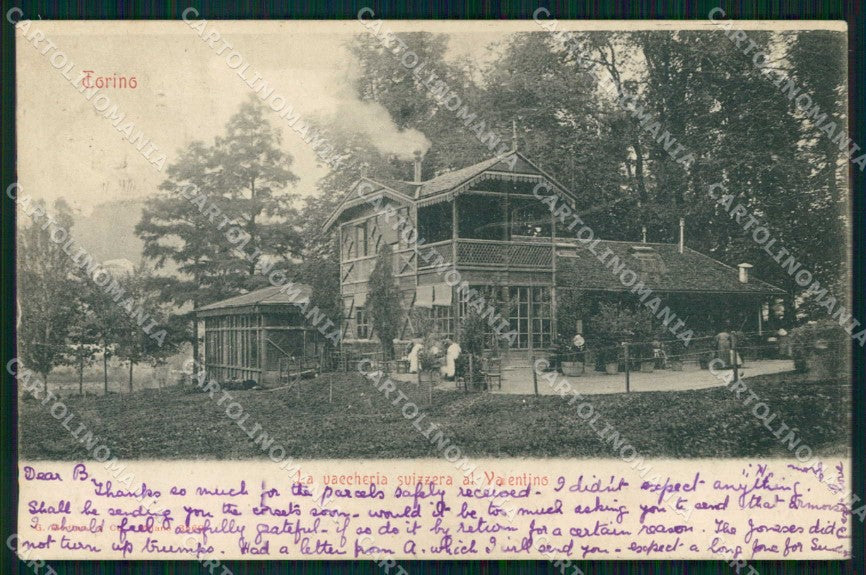 Torino
La vaccheria svizzera al Valentino
Dear B
Thanks so much for the parcels safely received - I didn't expect anything.
Shall be sending you the corsets soon - would it be too much asking you to send that
I should feel awfully grateful - if so do it by return for a certain reason. The Joneses did
not turn up trumps. Had a letter from A. which I will send you - expect a long one for
CARTOLINOMANIA.COM